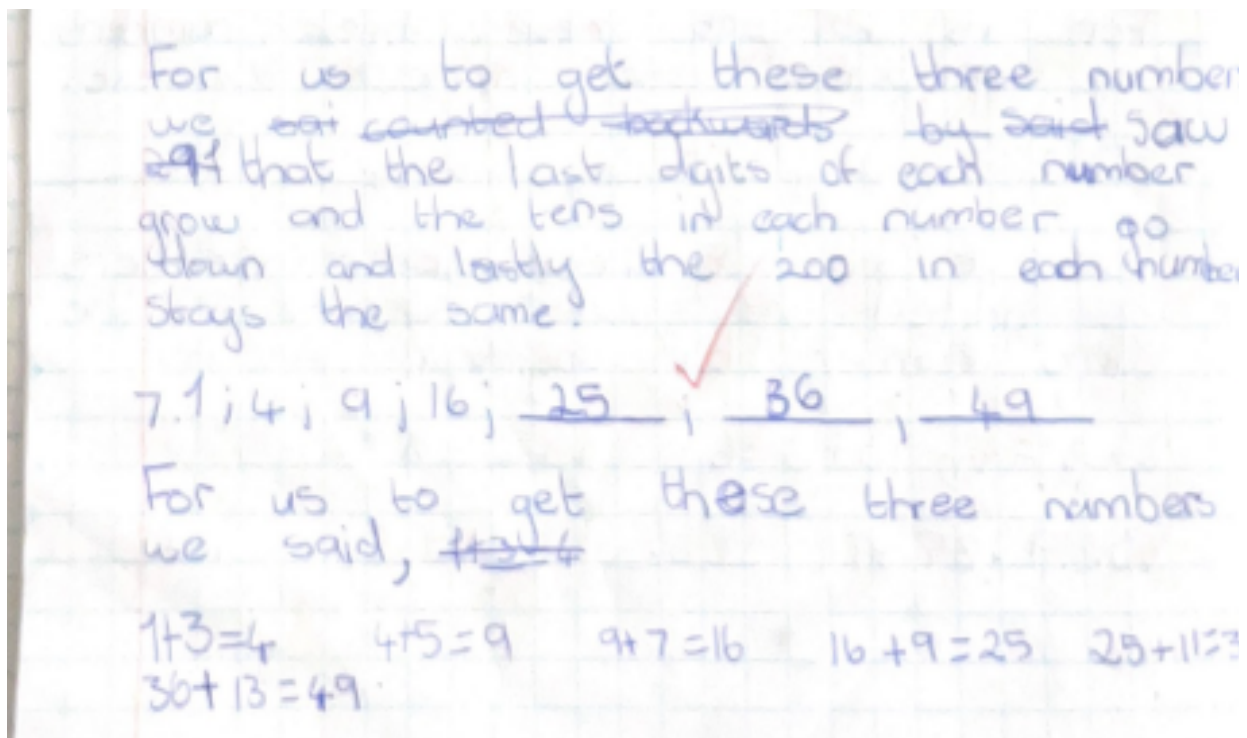 For us to get these three number
we sai counted backwards by said saw
291 that the last digits of each number
grow and the tens in each number go
down and lastly the 200 in each number
stays the same.
7. 1 ; 4 ; 9 ; 16 ; 25 ; 36 ; 49
For us to get these three numbers
we said, 1+3=4
1+3=4 4+5=9 9+7=16 16+9=25 25+11=3
36+13=49